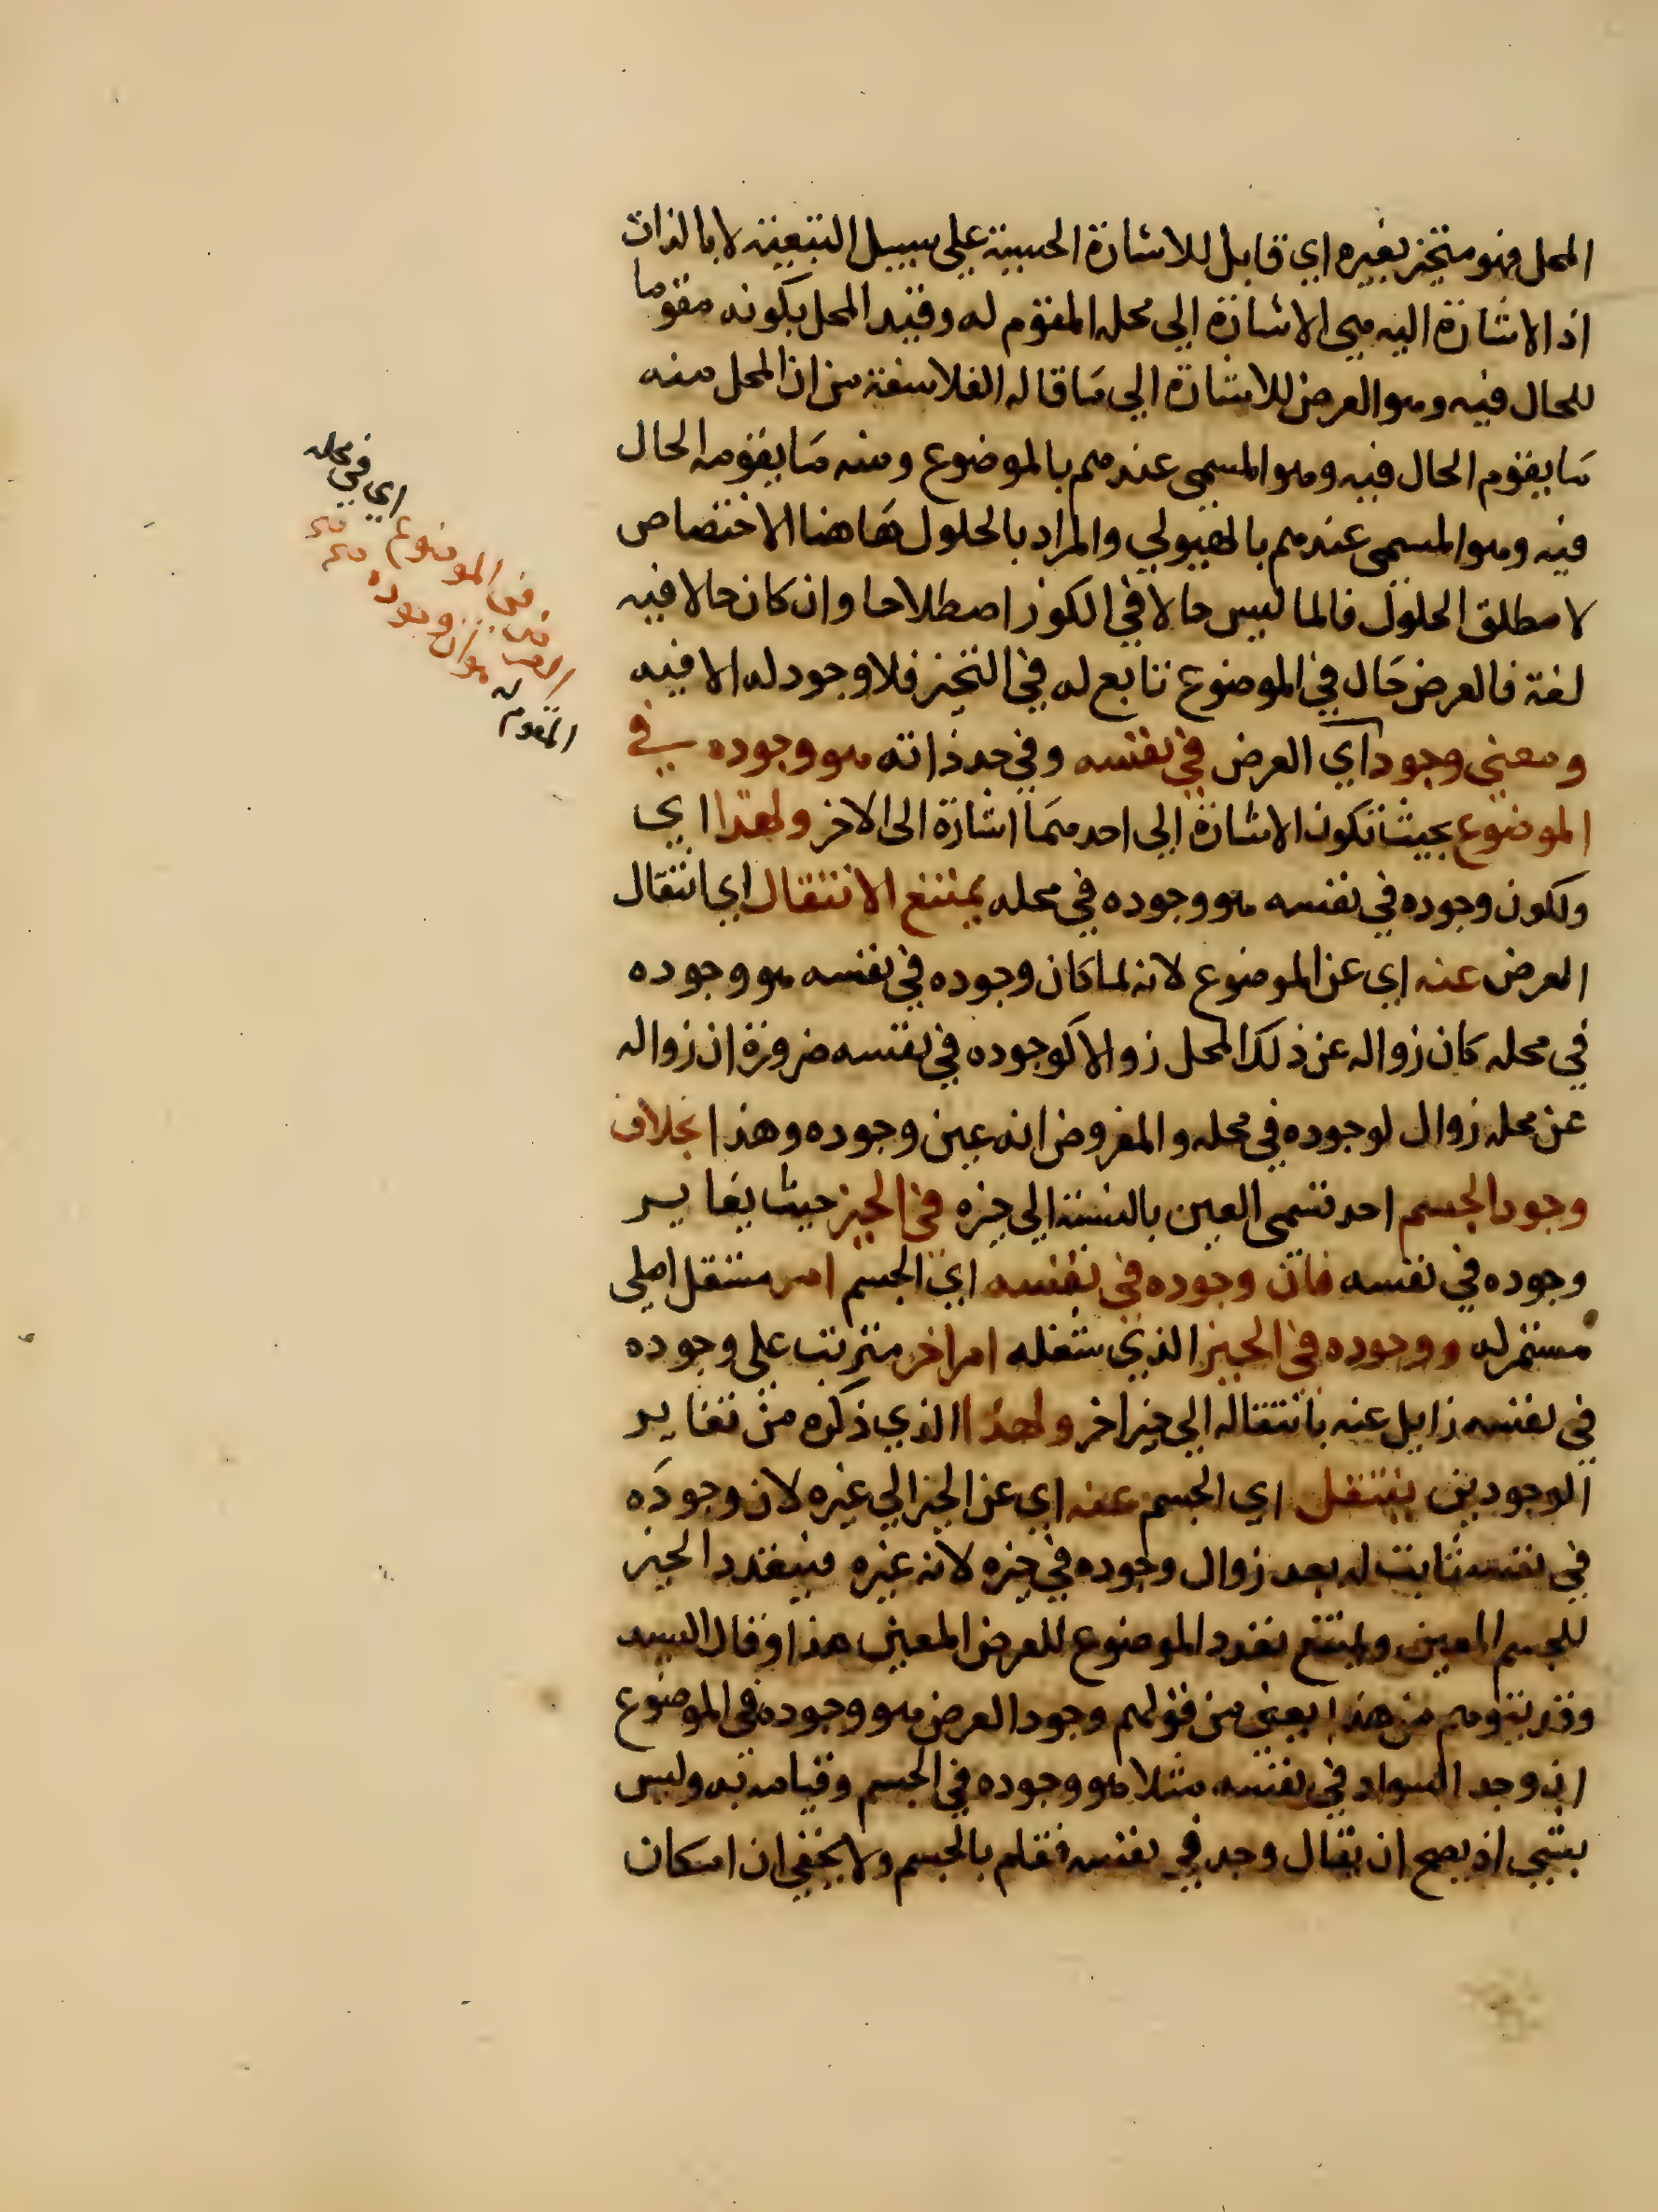 المحل فهو متحيز بغيره اي قابل للاشارة الحسية على سبيل التبعية لا بالذات
اذ الاشارة اليه هي الاشارة الي محله المقوم له وقيد المحل بكونه مقوما
للحال فيه وهو العرض للاشارة الي ما قاله الفلاسفة من ان المحل منه
ما يقوم الحال فيه وهو المسمى عندهم بالموضوع ومنه ما يقومه الحال
فيه وهو المسمى عندهم بالهيولي والمراد بالحلول هاهنا الاختصاص
لا مطلق الحلول فالما ليس حالا في الكوز اصطلاحا وان كان حالا فيه
لغة فالعرض حال في الموضوع تابع له في التحيز فلا وجود له الا فيه
ومعني وجود اي العرض في نفسه وفي حد ذاته هو وجوده في
الموضوع بحيث تكون الاشارة الي احدهما اشارة الى الاخر ولهذا اي
ولكون وجوده في نفسه هو وجوده في محله يمتنع الانتقال اي انتقال
العرض عنه اي عن الموضوع لانه لما كان وجوده في نفسه هو وجوده
في محله كان زواله عن ذلك المحل زوالا لوجوده في نفسه ضرورة ان زواله
عن محله زوال لوجوده في محله والمفروض انه عين وجوده وهذا بخلاف
وجود الجسم احد قسمي العين بالنسبة الي حيزه في الحيز حيث يغاير
وجوده في نفسه فان وجوده في نفسه اي الجسم امر مستقل اصلى
مستمر له ووجوده في الحيز الذي شغله امر اخر مترتب على وجوده
في نفسه زايل عنه بانتقاله الي حيز اخر ولهذا الذي ذكره من تغاير
الوجودين ينتقل اي الجسم عنه اي عن الحيز الي غيره لان وجوده
في نفسه ثابت له بعد زوال وجوده في حيزه لانه غيره فيتعدد الحيز
للجسم المعين ويمتنع تعدد الموضوع للعرض المعين هذا وقال السيد
وقد يتوهم من هذا يعني من قولهم وجود العرض هو وجوده في الموضوع
ان وجد السواد في نفسه مثلا هو وجوده في الجسم وقيامه به وليس
بشي اذ يصح ان يقال وجد في نفسه فقام بالجسم ولا يخفي ان امكان
اي في محله
في الموضوع
هو ان وجوده
المقوم له